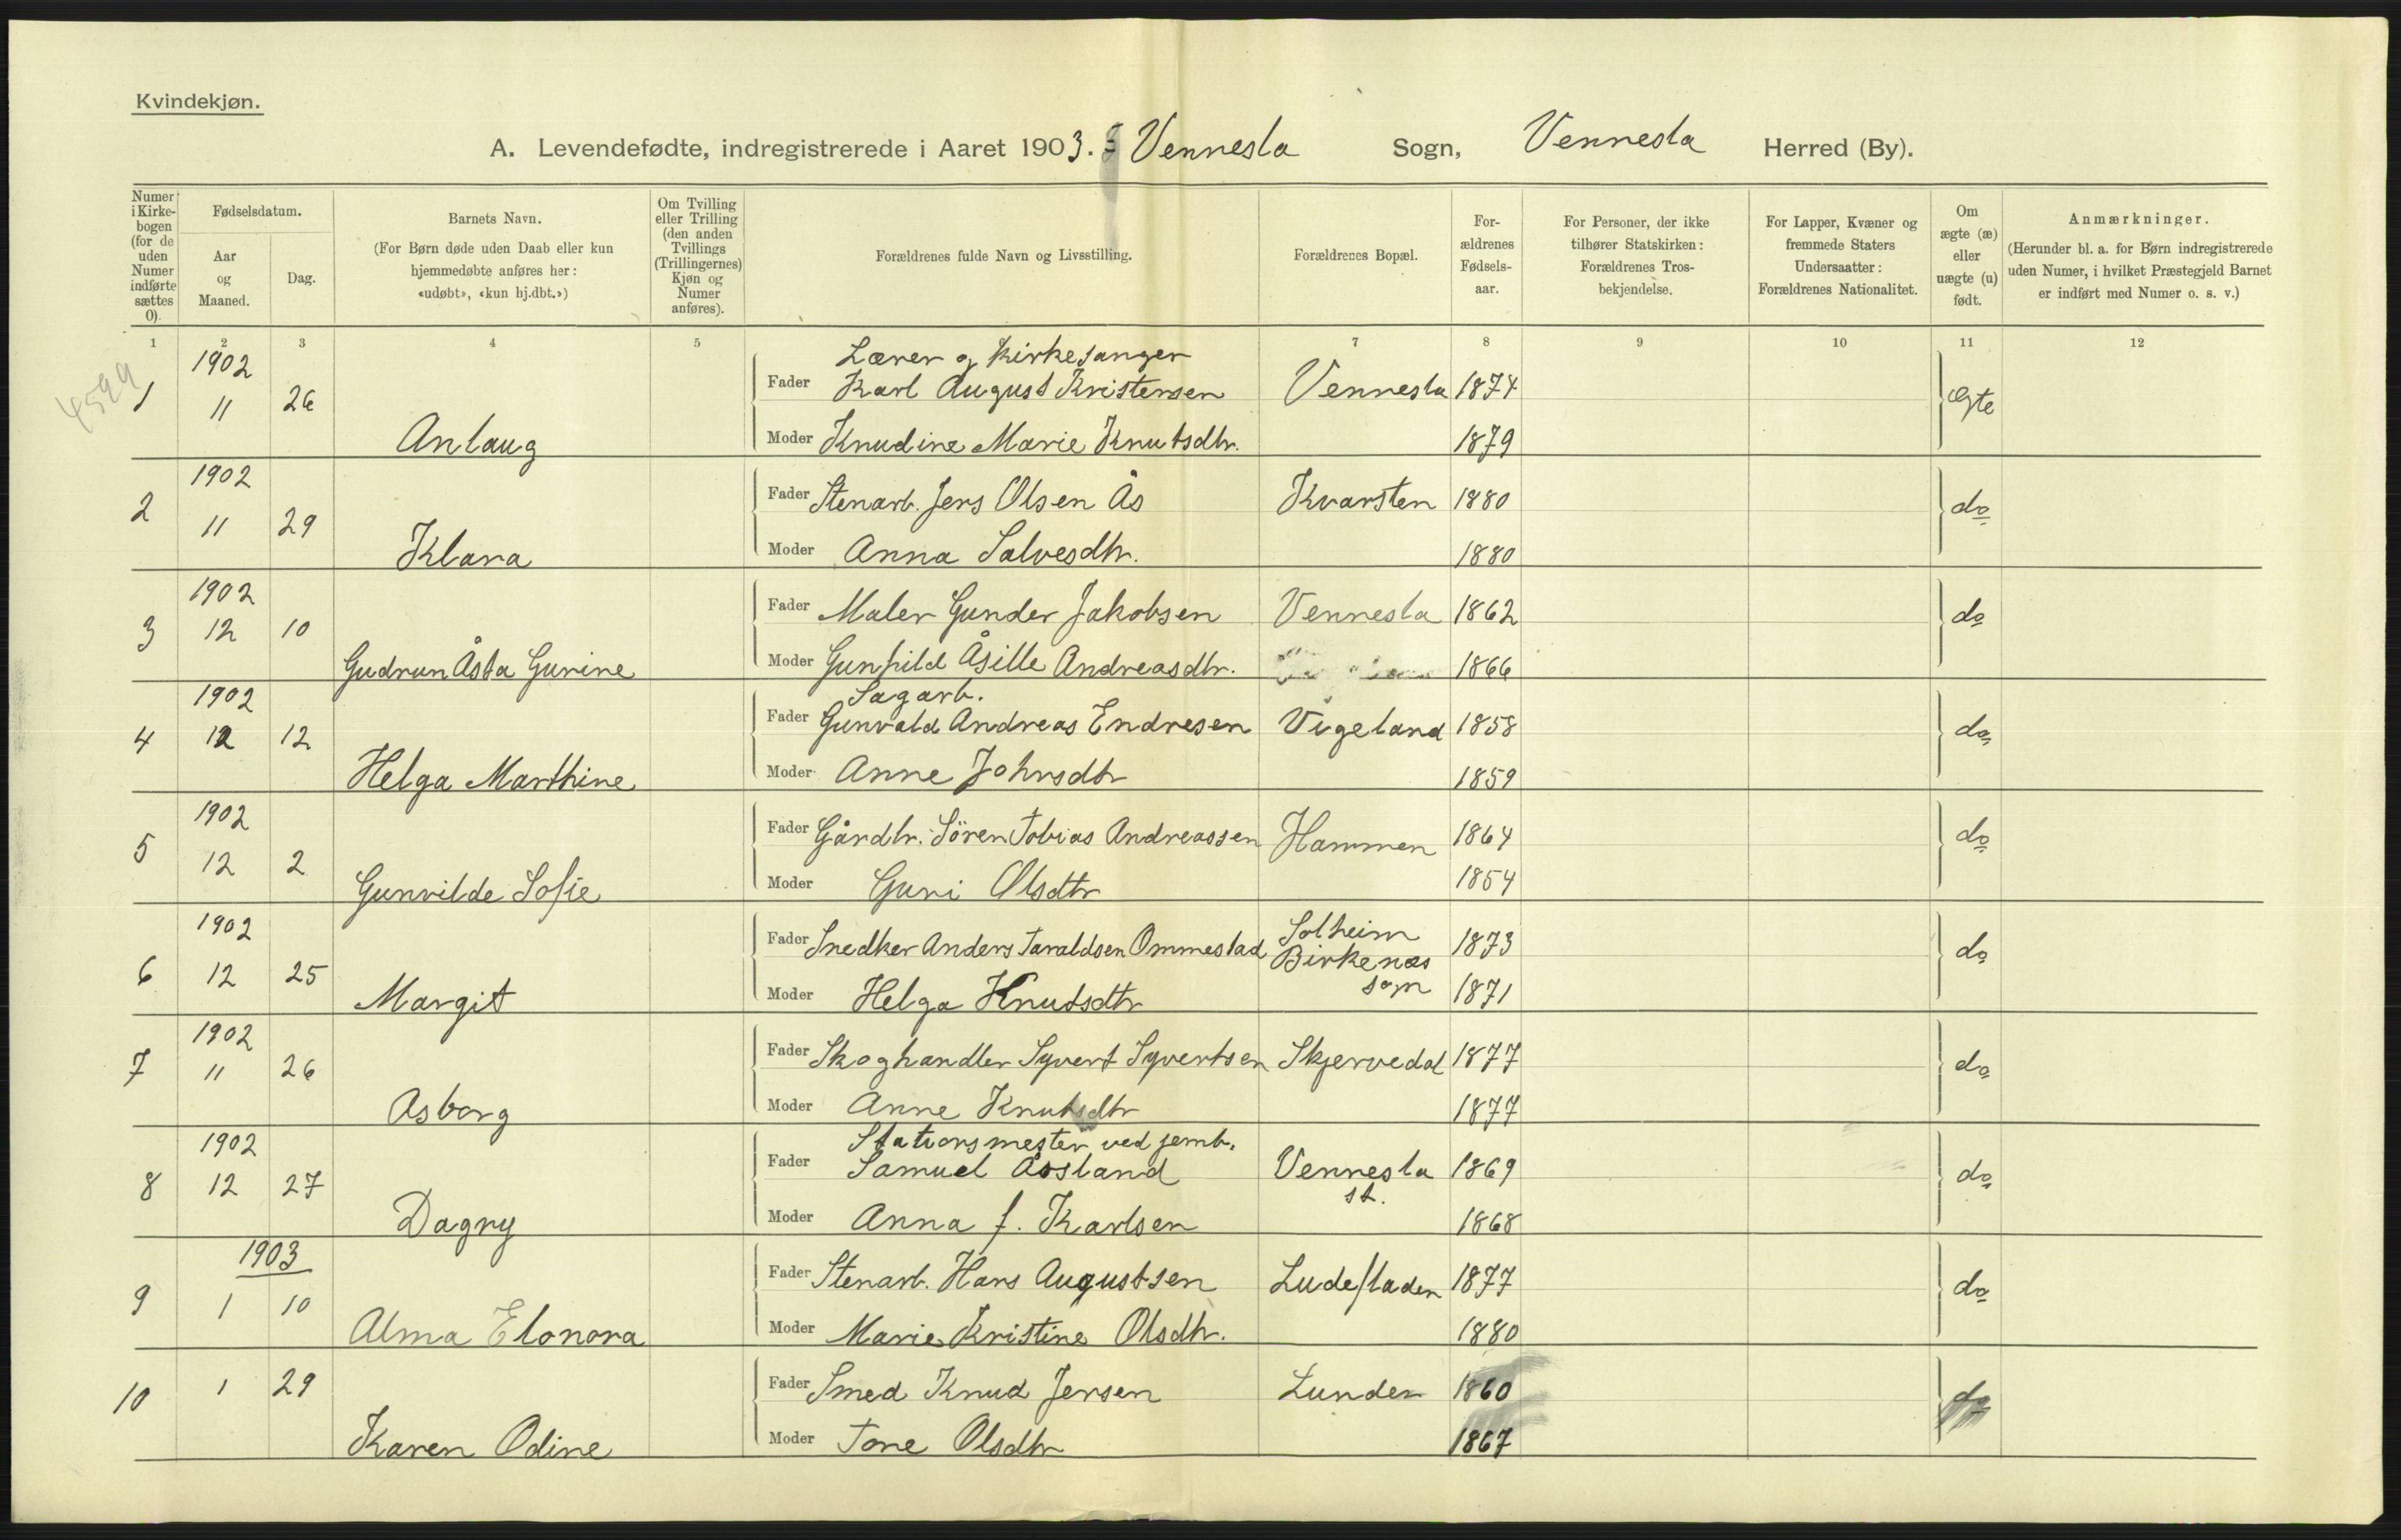 Kvindekjøn.
A. Levendefødte, indregistrerede i Aaret 1903. Vennesla Sogn, Vennesla Herred (By).
Numer i Kirkebogen (for de uden Numer indførte sættes 0).
Fødselsdatum.
Aar og Maaned.
Dag.
Barnets Navn.
(For Børn døde uden Daab eller kun hjemmedøbte anføres her: «udøbt», «kun hj.dbt.»)
Om Tvilling eller Trilling (den anden Tvillings (Trillingernes) Kjøn og Numer anføres).
Forældrenes fulde Navn og Livsstilling.
Forældrenes Bopæl.
For-ældrenes Fødsels-aar.
For Personer, der ikke tilhører Statskirken: Forældrenes Tros-bekjendelse.
For Lapper, Kvæner og fremmede Staters Undersaatter: Forældrenes Nationalitet.
Om ægte (æ) eller uægte (u) født.
Anmærkninger.
(Herunder bl. a. for Børn indregistrerede uden Numer, i hvilket Præstegjeld Barnet er indført med Numer o. s. v.)
1 2 3 4 5 7 8 9 10 11 12
4599
1902 Lærer og kirkesanger
1 11 26 Fader Karl August Kristensen Vennesla 1874 Ægte
Anlaug Moder Knudine Marie Knutsdtr. 1879
1902
2 11 29 Fader Stenarb. Jens Olsen Ås Kvarsten 1880 do
Klara Moder Anna Salvesdtr. 1880
1902
3 12 10 Fader Maler Gunder Jakobsen Vennesla 1862 do
Gudrun Åsta Gurine Moder Gunhild Åsille Andreasdtr. 1866
1902 Sagarb.
4 12 12 Fader Gunvald Andreas Endresen Vigeland 1858 do
Helga Marthine Moder Anne Johnsdtr 1859
1902
5 12 2 Fader Gårdbr. Sören Tobias Andreassen Hommen 1864 do
Gunvilde Sofie Moder Guri Olsdtr 1854
1902
6 12 25 Fader Snedker Anders Taraldsen Ommestad Solheim Birkenæs sogn 1873 do
Margit Moder Helga Knutsdtr 1871
1902
7 11 26 Fader Skoghandler Syvert Syvertsen Skjervedal 1877 do
Asborg Moder Anne Knutsdtr 1877
1902 Stationsmester ved jernb.
8 12 27 Fader Samuel Åsland Vennesla st. 1869 do
Dagny Moder Anna f. Karlsen 1868
1903
9 1 10 Fader Stenarb. Hans Augustsen Ludefladen 1877 do
Alma Elonora Moder Marie Kristine Olsdtr. 1880
10 1 29 Fader Smed Knud Jensen Lunden 1860 do
Karen Odine Moder Tone Olsdtr 1867